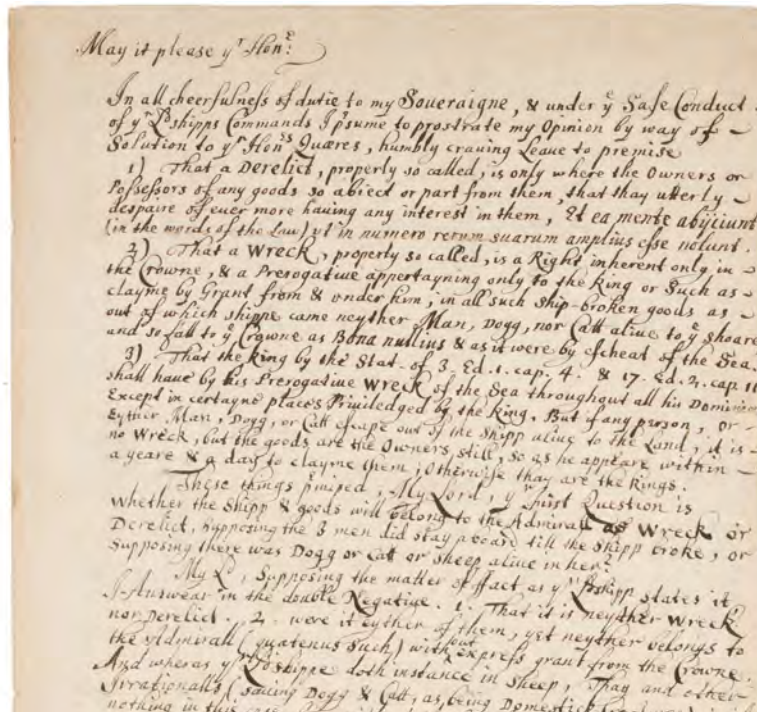 May it please yr Honr:
In all cheerfulness of dutie to my Soueraigne, & under ye Safe Conduct
of yr Ldshipps Commands I p'sume to prostrate my Opinion by way of
Solution to yr Honrs Quæres, humbly craving Leave to premise
1) That a Derelict, properly so called, is only where the Owners or
Possessors of any goods so abiect or part from them, that thay utterly
despaire of euer more hauing any interest in them, Et ea mente abijciunt
(in the words of the Law) ut in numero rerum suarum amplius esse nolunt.
2) That a Wreck, properly so called, is a Right inherent only in
the Crowne, & a Prerogative appertayning only to the King or Such as
clayme by Grant from & under him, in all such Ship-broken goods as
out of which shippe came neyther Man, Dogg, nor Catt aliue to ye shoare
and so fall to ye Crowne as Bona nullius & as it were by escheat of the Sea.
3) That the King by the Stat. of 3. Ed. 1. cap. 4. & 17. Ed. 2. cap. 11
shall haue by his Prerogatiue Wreck of the Sea throughout all his Dominions
Except in certayne places Priuiledged by the King. But if any person, or
Eyther Man, Dogg, or Catt escape out of the Shipp aliue to the Land, it is
no Wreck, but the goods are the Owners still, so as he appeare within
a yeare & a day to clayme them; Otherwise thay are the Kings.
These things p'mised, My Lord, yr first Question is
Whether the Shipp & goods will belong to the Admirall as Wreck or
Derelict, Supposing the 3 men did stay aboard till the Shipp broke, or
Supposing there was Dogg or Catt or Sheep aliue in her?
My Ld, Supposing the matter of ffact as yr Ldshipp states it
I Answear in the double Negative. 1. That it is neyther Wreck
nor Derelict. 2. were it eyther of them, yet neyther belongs to
the Admirall (quatenus such) without express grant from the Crowne.
And wheras yr Ldshippe doth instance in Sheep, Thay and other
Irrationalls (sauing Dogg & Catt, as being Domestick
nothing in this case